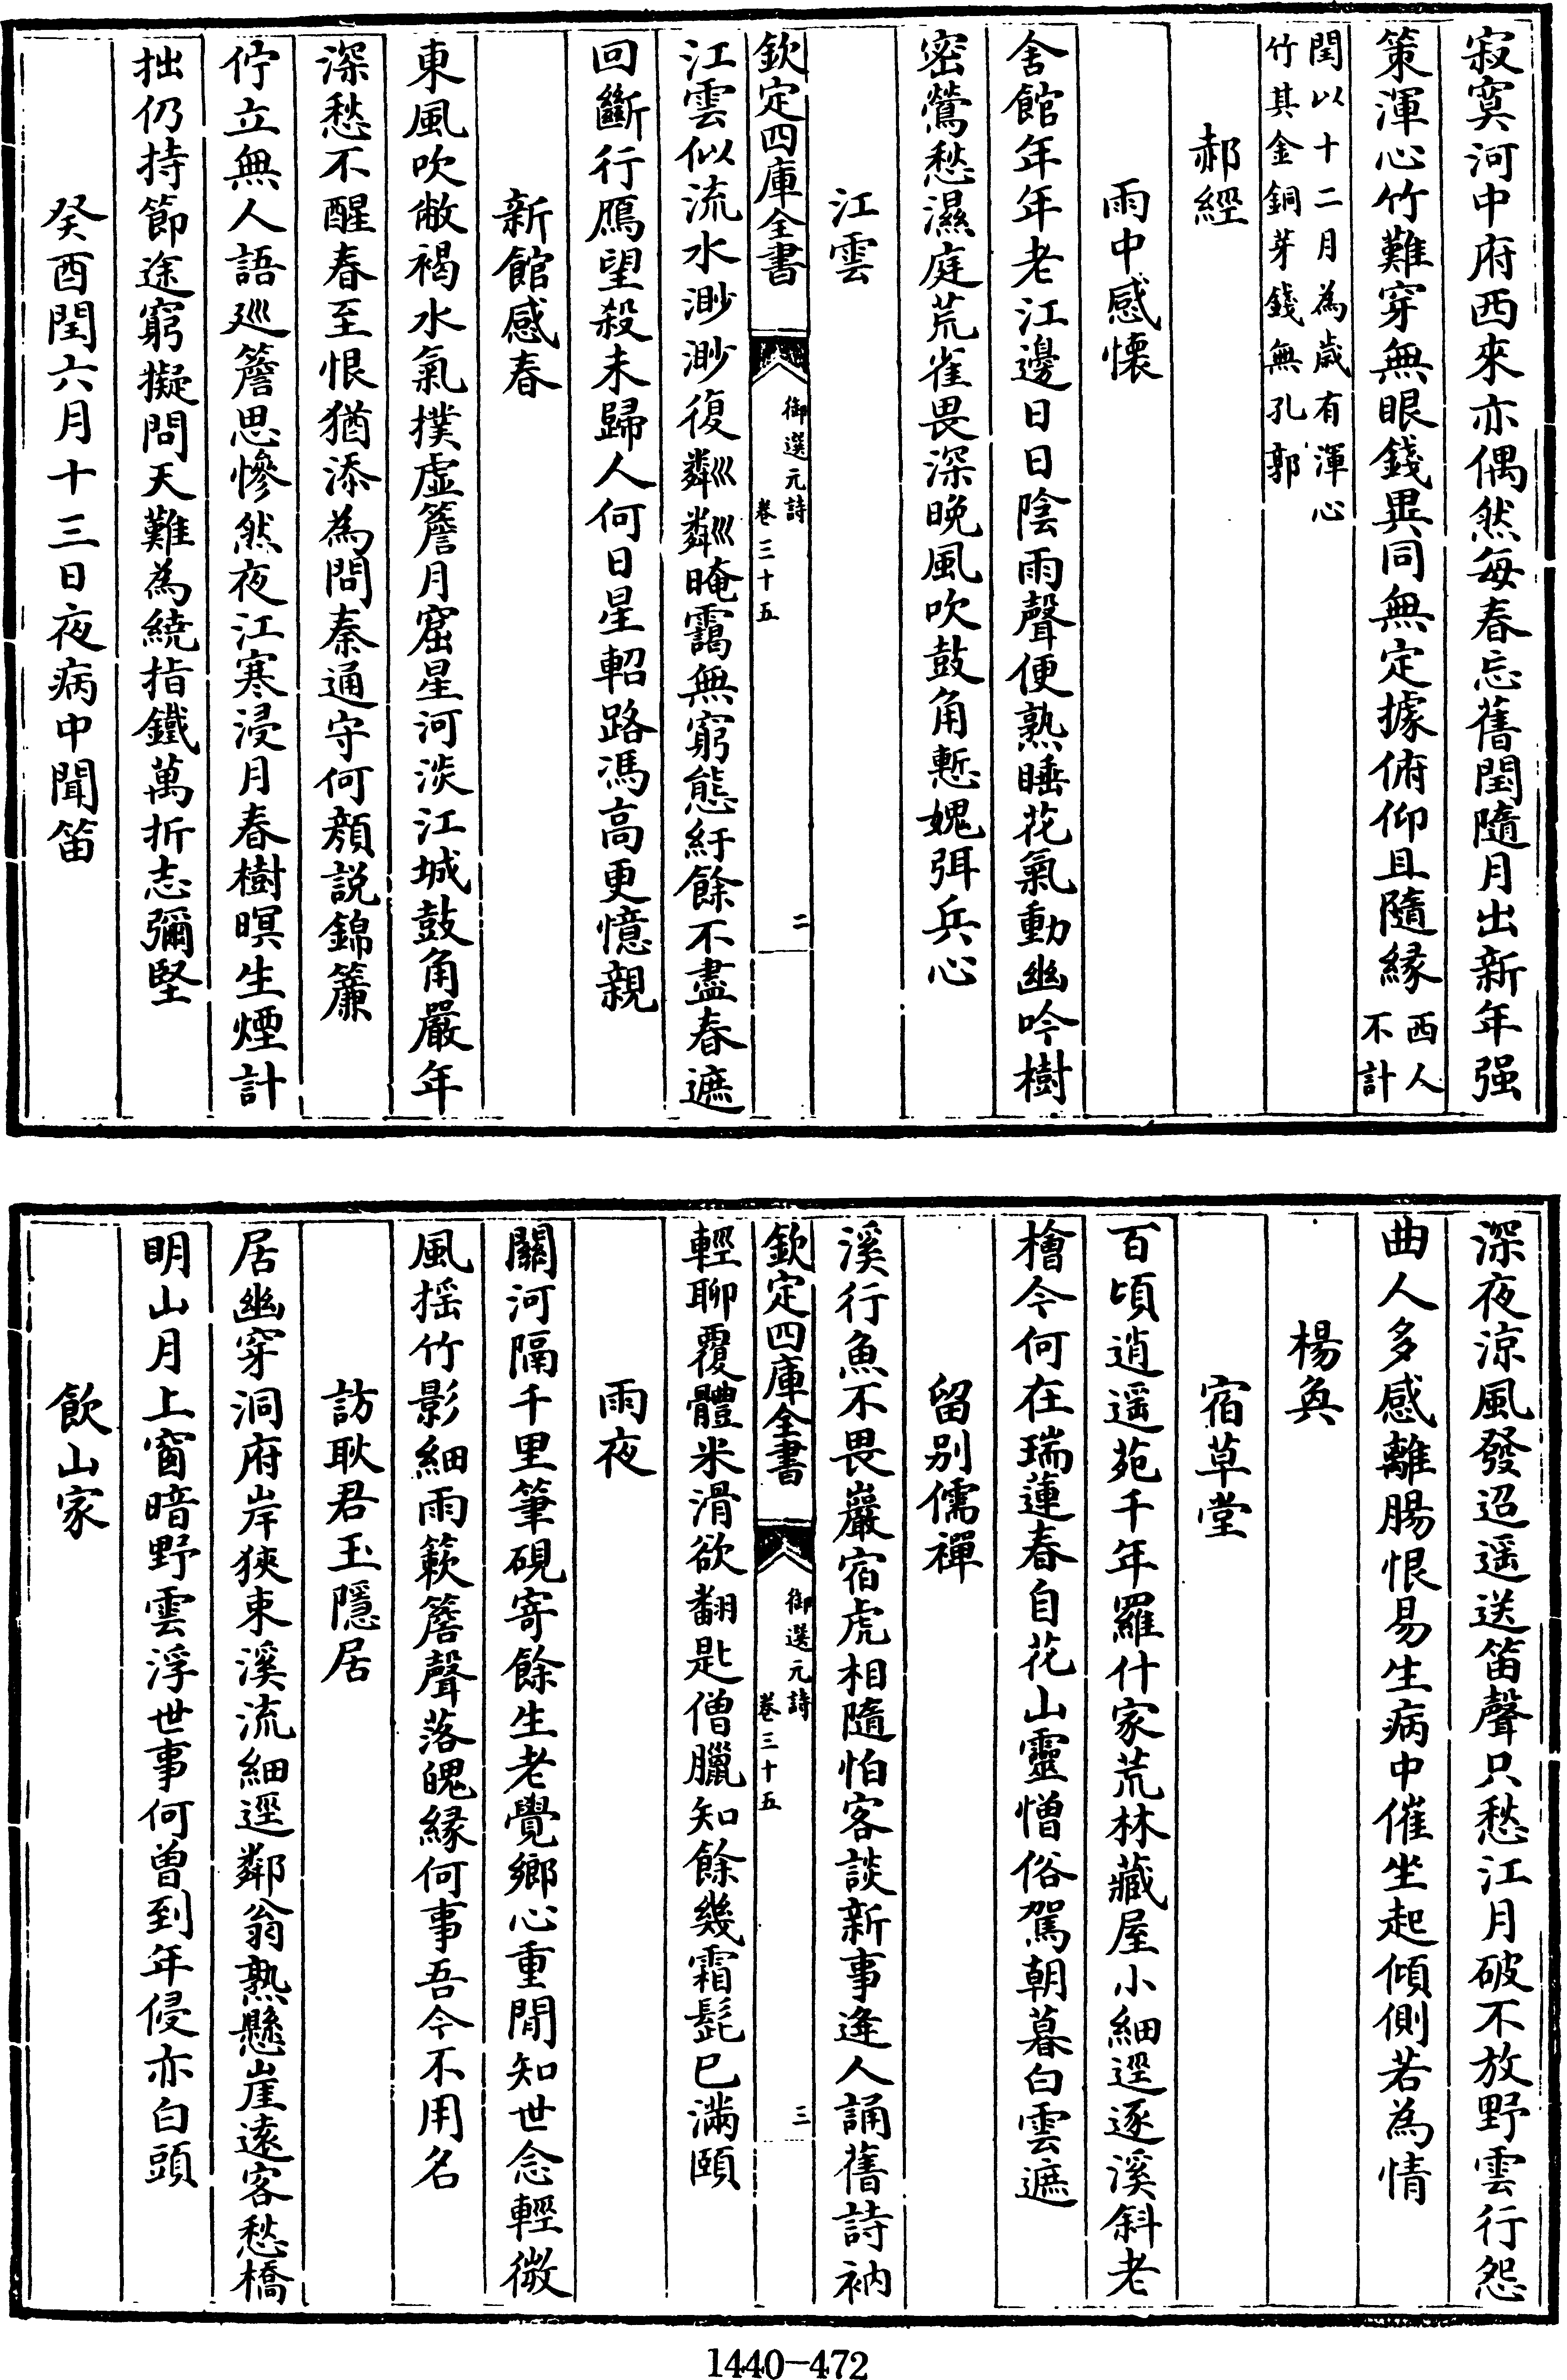 寂寞河中府西來亦偶然每春忘舊閏隨月出新年强
策渾心竹難穿無眼錢異同無定據俯仰且隨縁西人不計
閏以十二月為歲有渾心竹其金銅芽錢無孔郭
郝經
雨中感懐
舍館年年老江邊日日陰雨聲便熟睡花氣動幽吟樹
密鶯愁濕庭荒雀畏深晚風吹鼓角慙媿弭兵心
江雲
欽定四庫全書
御選元詩
卷三十五
二
江雲似流水渺渺復粼粼晻靄無窮態紆餘不盡春遮
回斷行鴈望殺未歸人何日星軺路馮高更憶親
新館感春
東風吹敝褐水氣撲虛簷月窟星河淡江城鼓角嚴年
深愁不醒春至恨猶添為問秦通守何顔說錦簾
佇立無人語巡簷思慘然夜江寒浸月春樹暝生煙計
拙仍持節途窮擬問天難為繞指鐵萬折志彌堅
癸酉閏六月十三日夜病中聞笛
深夜涼風發迢遥送笛聲只愁江月破不放野雲行怨
曲人多感離腸恨易生病中催坐起傾側若為情
楊奐
宿草堂
百頃逍遥苑千年羅什家荒林藏屋小細逕逐溪斜老
檜今何在瑞蓮春自花山靈憎俗駕朝暮白雲遮
留别儒禪
溪行魚不畏巖宿虎相隨怕客談新事逄人誦舊詩衲
欽定四庫全書
御選元詩
卷三十五
三
輕聊覆體米滑欲翻匙僧臘知餘幾霜髭已滿頤
雨夜
關河隔千里筆硯寄餘生老覺鄉心重閒知世念輕微
風揺竹影細雨簌簷聲落魄縁何事吾今不用名
訪耿君玉隱居
居幽穿洞府岸狹束溪流細逕鄰翁熟懸崖遠客愁橋
明山月上窗暗野雲浮世事何曽到年侵亦白頭
飲山家
1440-472